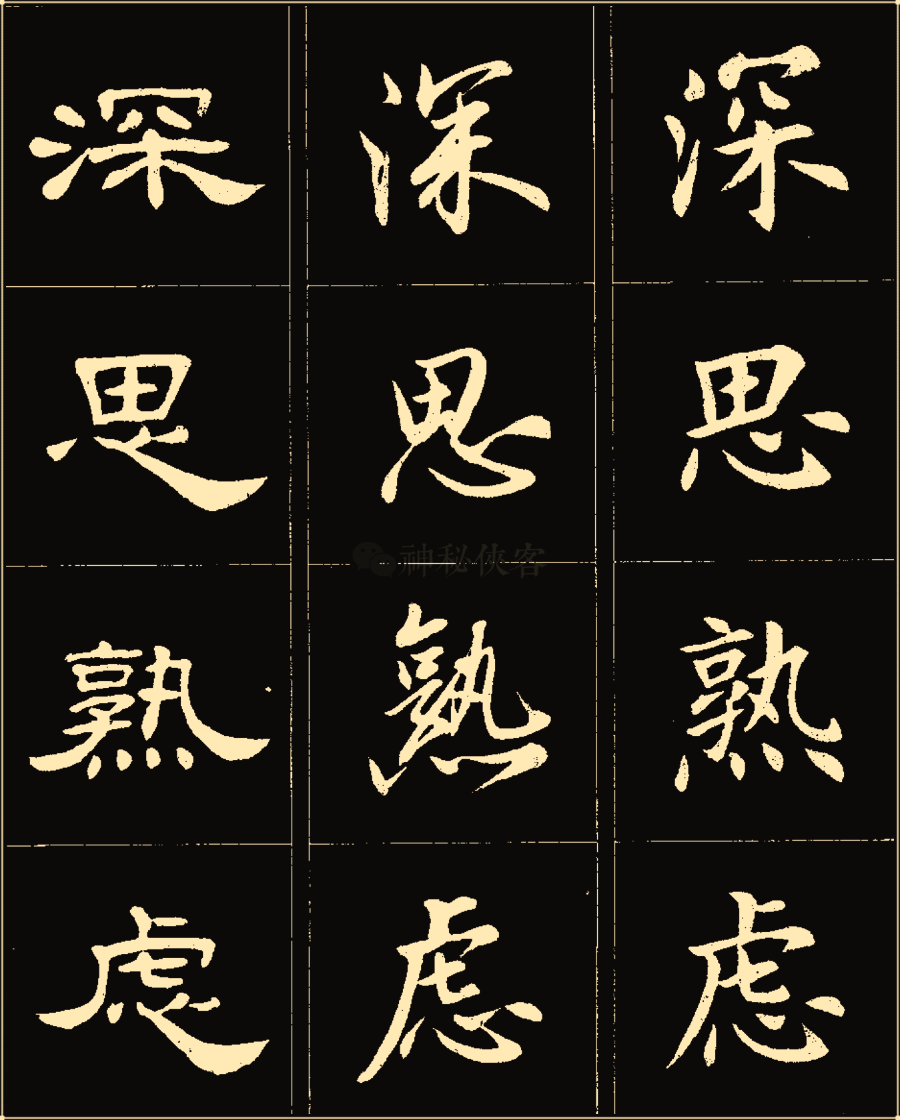 深思熟虑
深思熟虑
深思熟虑
神秘俠客